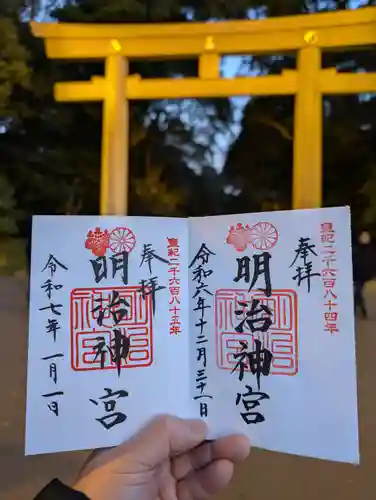 奉拝
皇紀二千六百八十四年
明治神宮
令和六年十二月三十一日
奉拝
皇紀二千六百八十五年
明治神宮
令和七年一月一日